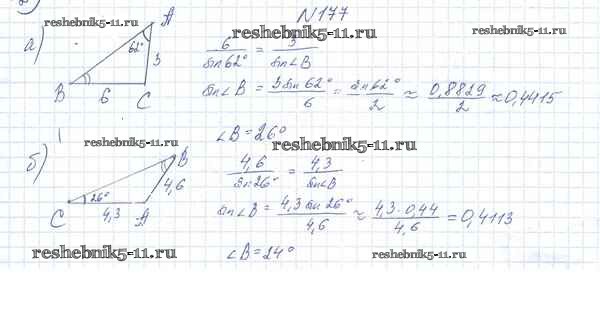 N177
reshebnik5-11.ru
reshebnik5-11.ru
reshebnik5-11.ru
а)
A
62°
3
B
6
C
6/sin62° = 3/sin∠B
sin∠B = 3sin62°/6 = sin62°/2 ≈ 0,8829/2 ≈ 0,4415
∠B = 26°
reshebnik5-11.ru
reshebnik5-11.ru
б)
B
4,6
26°
C
4,3
A
4,6/sin26° = 4,3/sin∠B
sin∠B = 4,3 sin26°/4,6 ≈ 4,3·0,44/4,6 = 0,4113
∠B = 24°
reshebnik5-11.ru
reshebnik5-11.ru